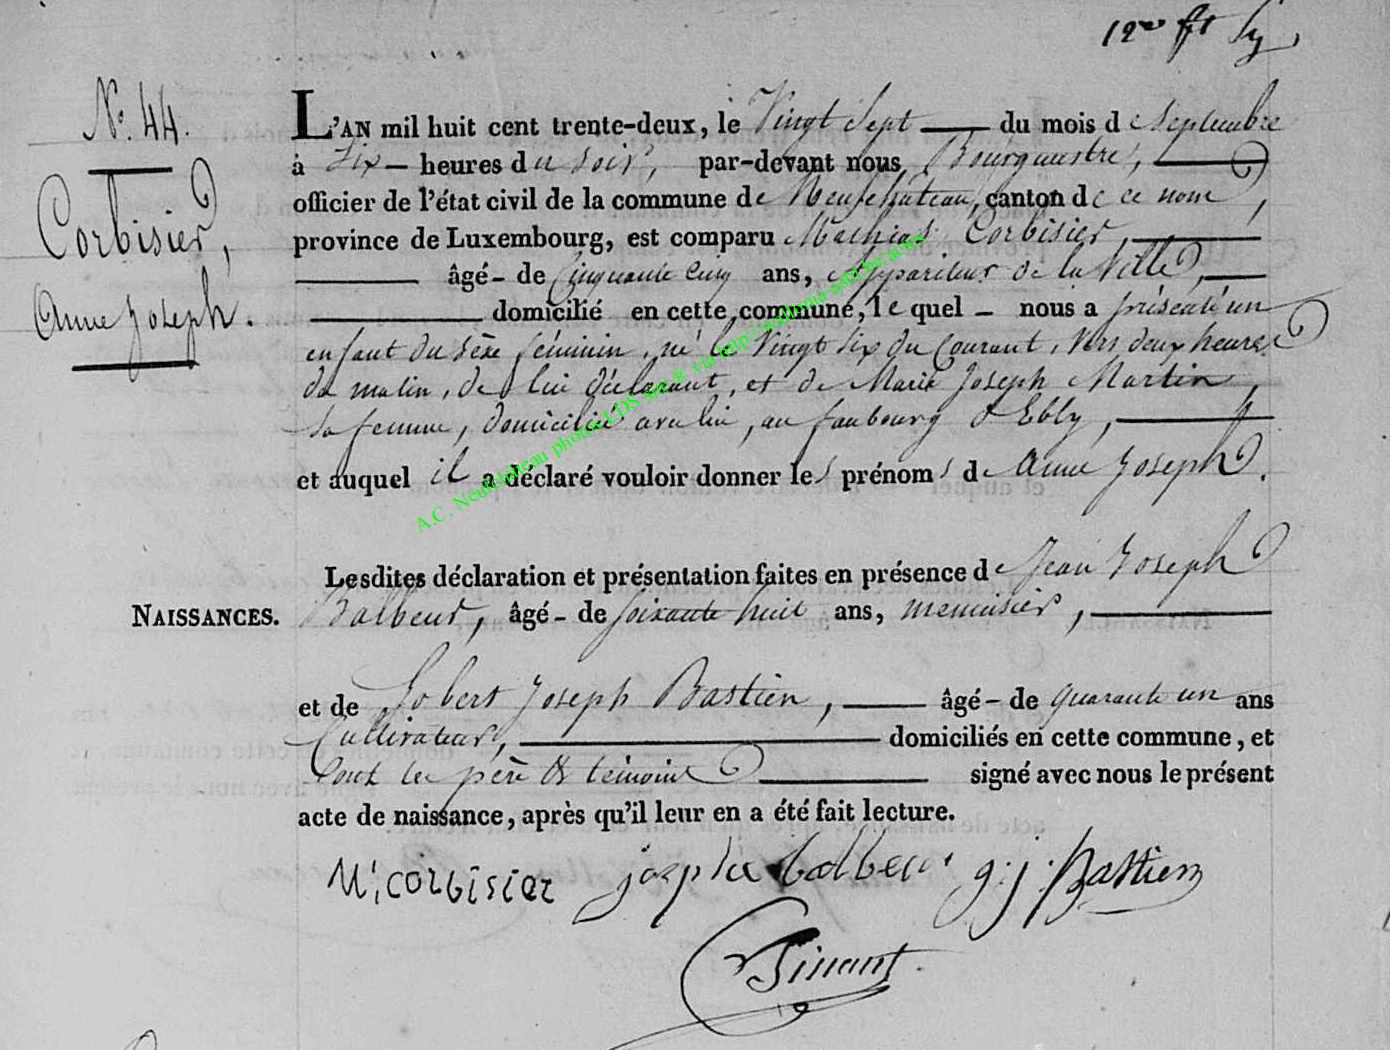 12me ft
N.º 44.
L'AN mil huit cent trente-deux, le Vingt Sept du mois de Septembre
à Six heures du soir, par-devant nous Bourgmestre,
officier de l'état civil de la commune de Neufchâteau, canton de ce nom,
Corbisier,
province de Luxembourg, est comparu Mathias Corbisier,
âgé de Cinquante Cinq ans, Appariteur de la Ville,
Anne Joseph.
domicilié en cette commune, le quel nous a présenté un
enfant du sèxe féminin, né le Vingt Six du Courant, Vers deux heures
du matin, de lui déclarant, et de Marie Joseph Martin,
sa femme, domicilié avec lui, au faubourg d'Ebly,
et auquel il a déclaré vouloir donner les prénoms de Anne Joseph.
A.C. Neufchâteau photos LDS via http://wallonia-asbl.be/actes
Lesdites déclaration et présentation faites en présence de Jean Joseph
NAISSANCES.
Balbeur, âgé de soixante huit ans, menuisier,
et de Joseph Bastien, âgé de quarante un ans
Cultivateur, domiciliés en cette commune, et
ont les père & témoins signé avec nous le présent
acte de naissance, après qu'il leur en a été fait lecture.
M: corbisier joseph balbeur g: j: Bastien
Sinant